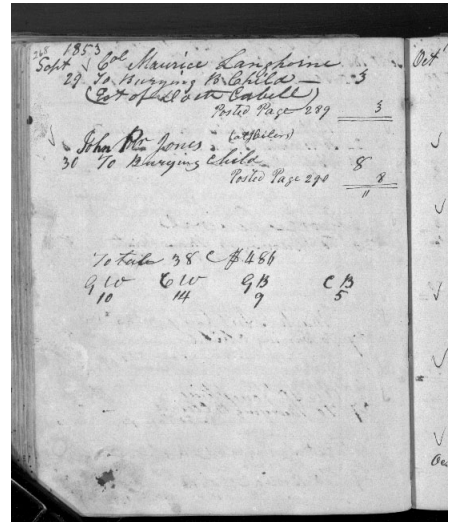 268 1853
Sept Col Maurice Langhorne
29 To Burying B Child — 3
(Est of Cabell)
Posted Page 289 3
John R Jones
30 To Burying Child 8
Posted Page 290 8
11
Totals 38 C $486
G W C W G B C B
10 14 9 5
Oct